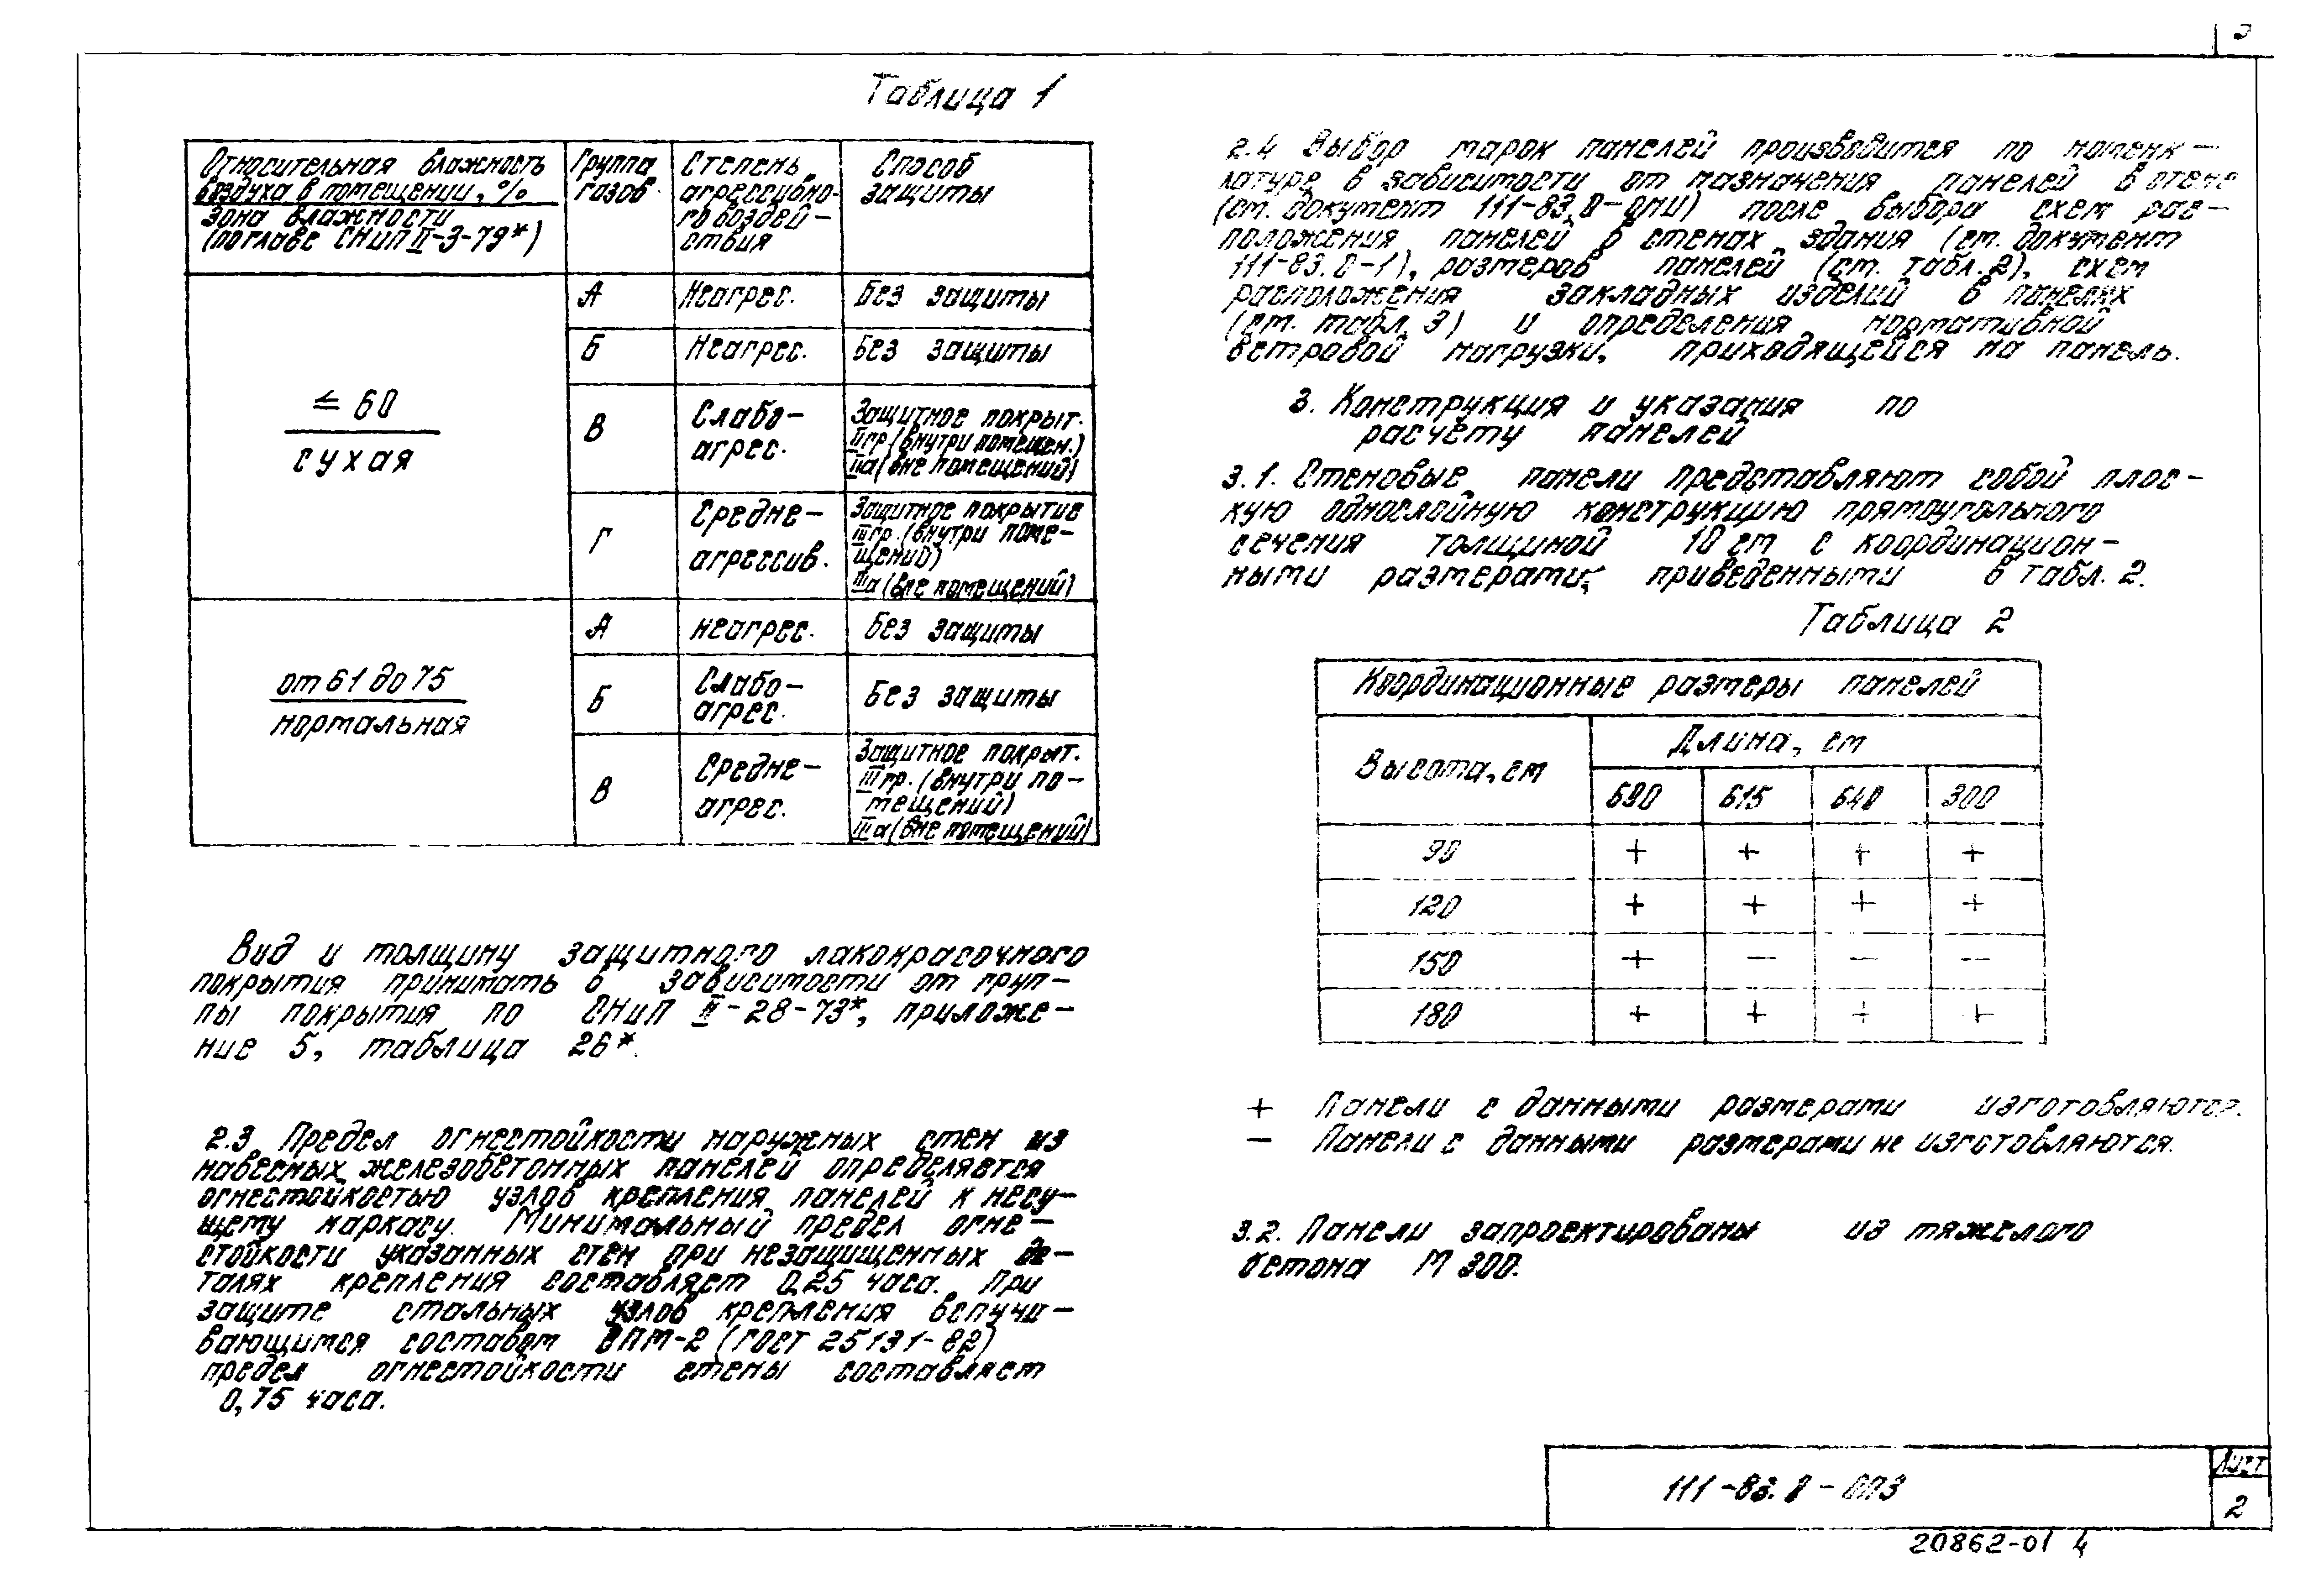 Таблица 1
Относительная влажность
воздуха в помещении, %
Зона влажности
(по главе СНиП II-3-79*)
Группа
газов
Степень
агрессивно-
го воздей-
ствия
Способ
защиты
≤ 60
сухая
А
Неагрес.
Без защиты
Б
Неагрес.
Без защиты
В
Слабо-
агрес.
Защитное покрыт.
II гр. (внутри помещен.)
IIа (вне помещений)
Г
Средне-
агрессив.
Защитное покрытие
III гр. (внутри поме-
щений)
IIIа (вне помещений)
от 61 до 75
нормальная
А
неагрес.
Без защиты
Б
Слабо-
агрес.
Без защиты
В
Средне-
агрес.
Защитное покрыт.
III гр. (внутри по-
мещений)
IIIа (вне помещений)
Вид и толщину защитного лакокрасочного
покрытия принимать в зависимости от груп-
пы покрытия по СНиП II-28-73*, приложе-
ние 5, таблица 26*.
2.3. Предел огнестойкости наружных стен из
навесных железобетонных панелей определяется
огнестойкостью узлов крепления панелей к несу-
щему каркасу. Минимальный предел огне-
стойкости указанных стен при незащищенных де-
талях крепления составляет 0,25 часа. При
защите стальных узлов крепления вспучи-
вающимся составом ВПМ-2 (ГОСТ 25131-82)
предел огнестойкости стены составляет
0,75 часа.
2.4 Выбор марок панелей производится по номенк-
латуре в зависимости от назначения панелей в стене
(см. документ 111-83.0-0НИ) после выбора схем рас-
положения панелей в стенах здания (см. документ
111-83.0-1), размеров панелей (см. табл. 2), схем
расположения закладных изделий в панелях
(см. табл. 3) и определения нормативной
ветровой нагрузки, приходящейся на панель.
3. Конструкция и указания по
расчёту панелей
3.1. Стеновые панели представляют собой плос-
кую однослойную конструкцию прямоугольного
сечения толщиной 10 см с координацион-
ными размерами, приведенными в табл. 2.
Таблица 2
Координационные размеры панелей
Высота, см
Длина, см
690 615 640 300
90 + + + +
120 + + + +
150 + — — —
180 + + + +
+ Панели с данными размерами изготовляются.
— Панели с данными размерами не изготовляются.
3.2. Панели запроектированы из тяжелого
бетона М 300.
111-83.0-0ПЗ
Лист
2
20862-01 4